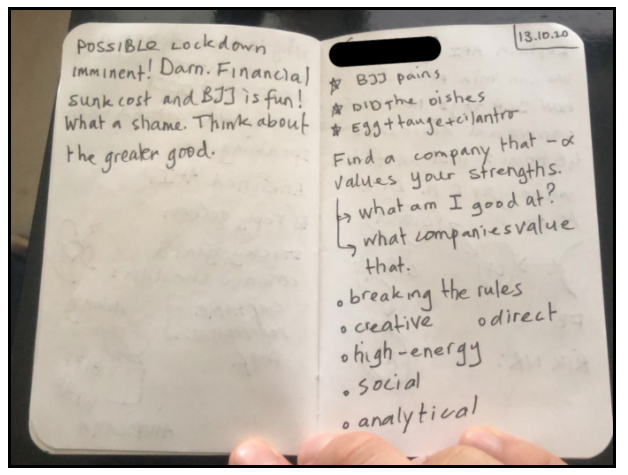 POSSIBLE Lockdown
imminent! Darn. Financial
sunk cost and BJJ is fun!
What a shame. Think about
the greater good.
13.10.20
☆ BJJ pains
☆ DID the dishes
☆ Egg++auge+cilantro
Find a company that -α
values your strengths.
↳ what am I good at?
↳ what companies value
that.
• breaking the rules
• creative • direct
• high-energy
• social
• analytical